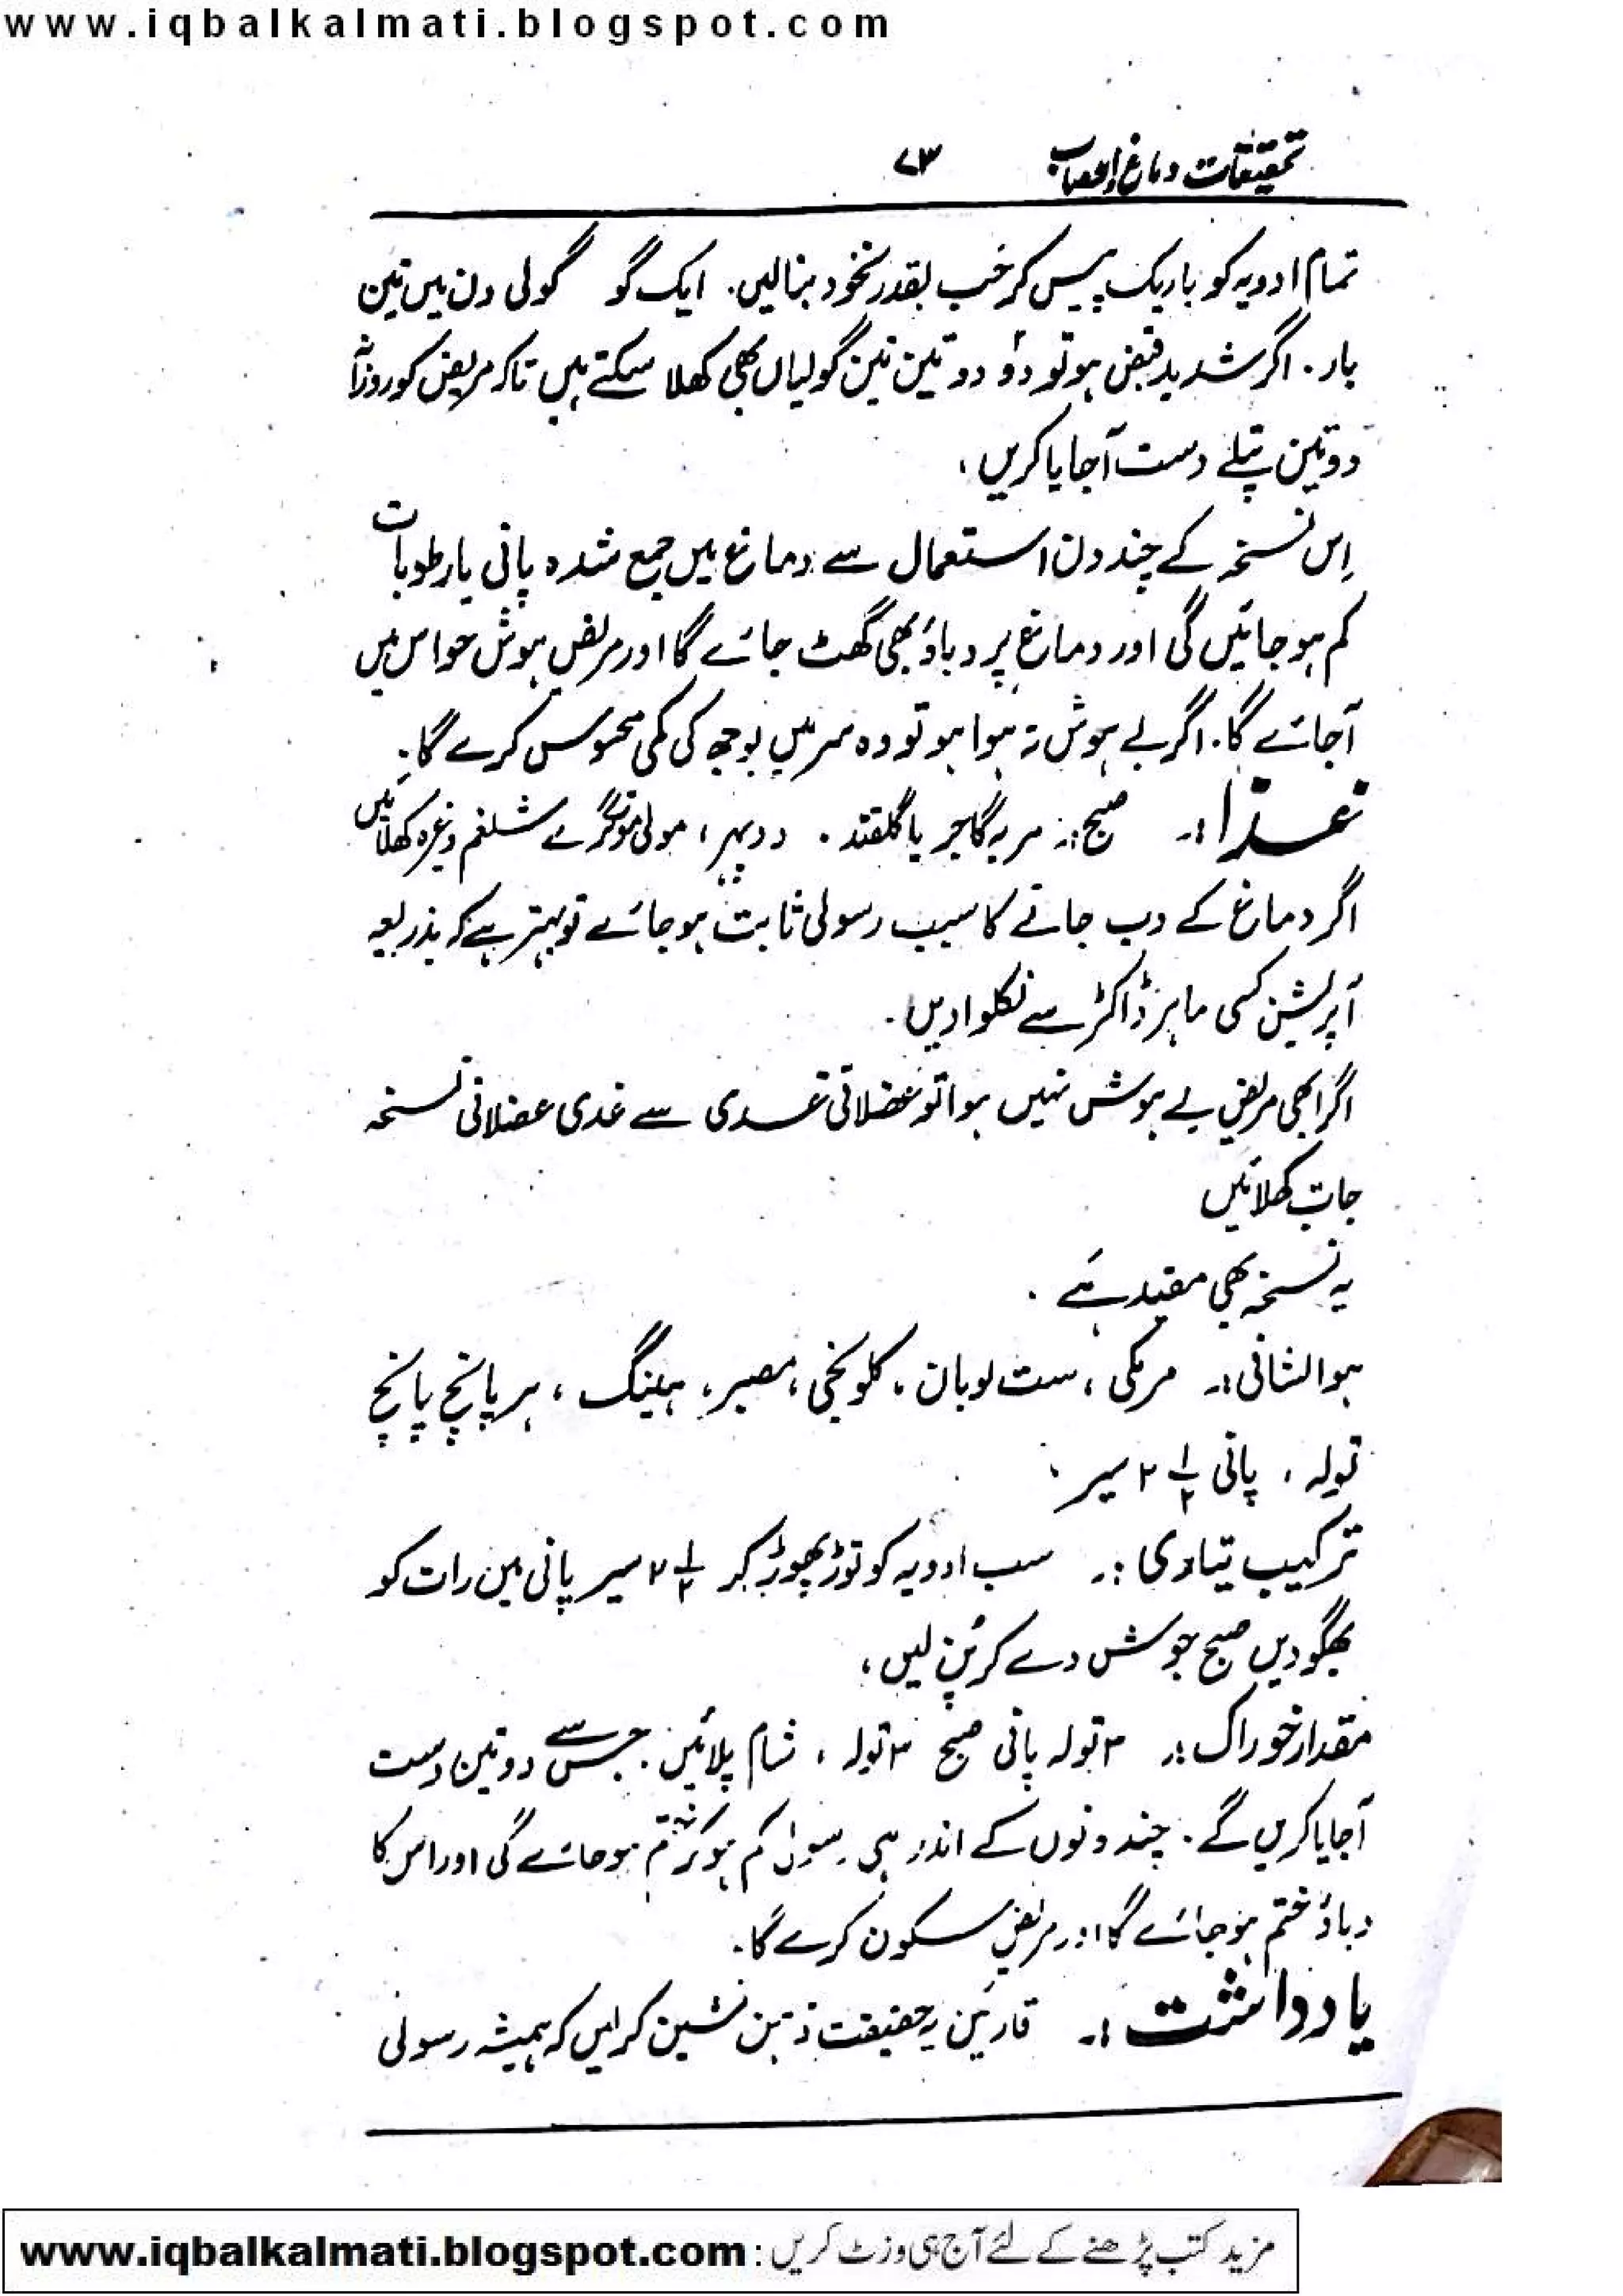 www.iqbalkalmati.blogspot.com
تحقیقات دماغ اعصاب ۷۳
تمام ادویہ کو باریک پیس کر حب بقدر نخود بنالیں. ایک گو گولی دن میں تین
بار. اگر شدید قبض ہو تو دو دو تین تین گولیاں بھی کھلا سکتے ہیں تاکہ مریض کو روزانہ
دو تین پتلے دست آ جایا کریں،
اِس نسخہ کے چند دن استعمال سے دماغ میں جمع شدہ پانی یا رطوبات
کم ہو جائیں گی اور دماغ پر دباؤ بھی گھٹ جائے گا اور مریض ہوش حواس میں
آجائے گا. اگر بے ہوش نہ ہوا ہو تو وہ سر میں بوجھ کی کمی محسوس کرے گا.
غذا:۔ صبح:۔ مربہ گاجر یا گلقند. دوپہر، مولی مونگرے شلغم وغیرہ کھلائیں
اگر دماغ کے دب جانے کا سبب رسولی ثابت ہو جائے تو بہتر ہے کہ بذریعہ
آپریشن کسی ماہر ڈاکٹر سے نکلوا دیں.
اگر ابھی مریض بے ہوش نہیں ہوا تو عضلاتی غدی سے غدی عضلاتی نسخہ
جات کھلائیں
یہ نسخہ بھی مفید ہے.
ہوالشافی:۔ مرمکی، ست لوبان، کلونجی، مصبر، ہینگ، ہر پانچ پانچ
تولہ، پانی ۲ ۱/۲ سیر.
ترکیب تیاری:۔ سب ادویہ کو توڑ پھوڑ کر ۲ ۱/۲ سیر پانی میں رات کو
بھگو دیں صبح جوش دے کر پُن لیں،
مقدار خوراک:۔ ۳ تولہ پانی صبح ۳ تولہ، شام پلائیں. جس سے دو تین دست
آجایا کریں گے. چند دنوں کے اندر ہی رسولی کم ہو کر ختم ہو جائے گی اور اس کا
دباؤ ختم ہو جائے گا اور مریض سکون کرے گا.
یادداشت:۔ قارئین یہ حقیقت ذہن نشین کرلیں کہ ہمیشہ رسولی
مزید کتب پڑھنے کے لئے آج ہی وزٹ کریں : www.iqbalkalmati.blogspot.com